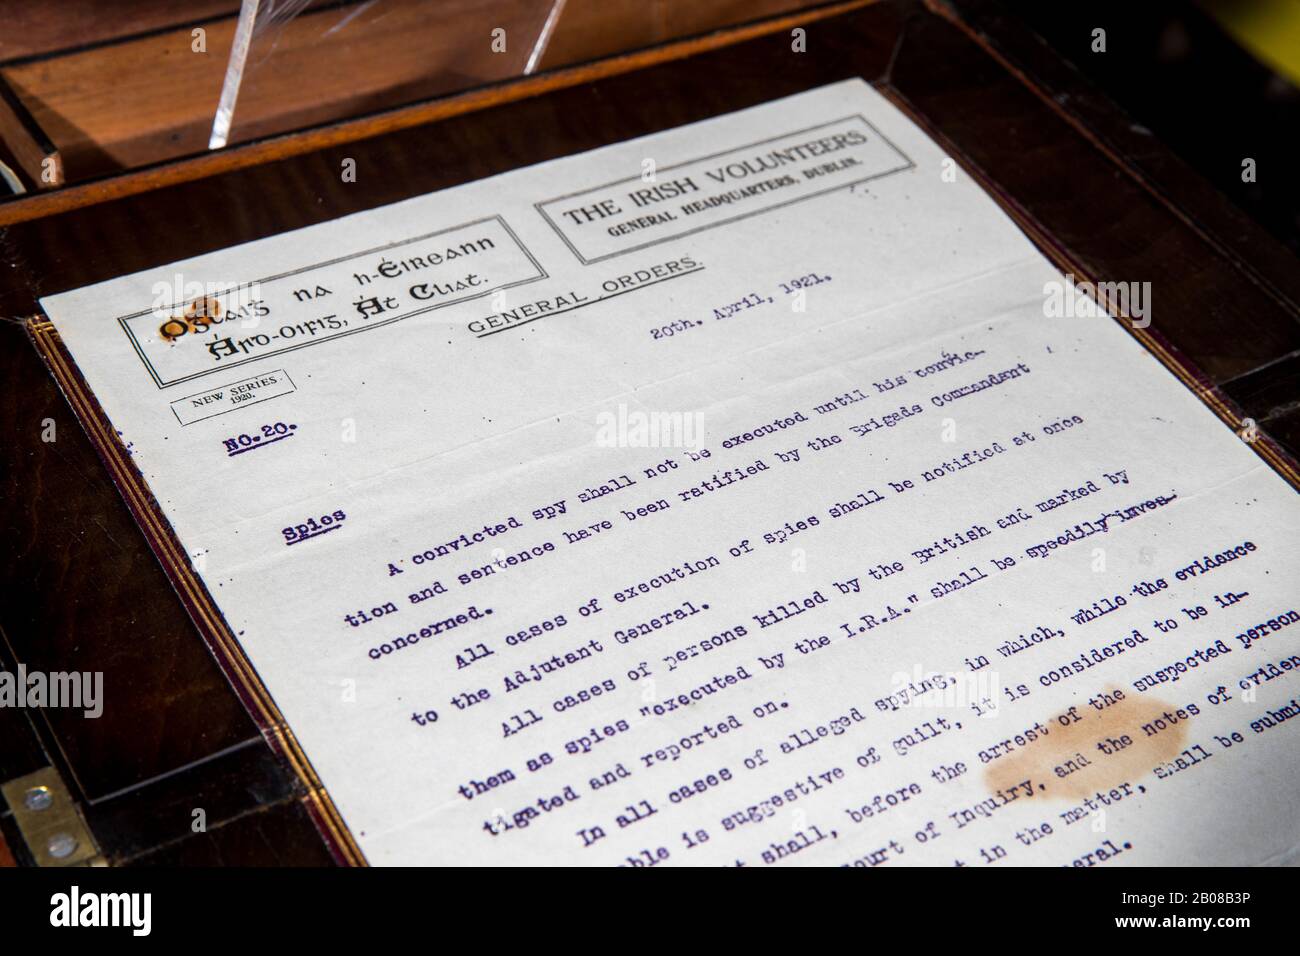 Óglaiġ na h-Éireann
Árd-Oifig, Át Cliat.
THE IRISH VOLUNTEERS
GENERAL HEADQUARTERS, DUBLIN.
GENERAL ORDERS.
NEW SERIES
1920.
20th. April, 1921.
NO.20.
Spies
A convicted spy shall not be executed until his convic-
tion and sentence have been ratified by the Brigade Commandant
concerned.
All cases of execution of spies shall be notified at once
to the Adjutant General.
All cases of persons killed by the British and marked by
them as spies "executed by the I.R.A." shall be speedily inves-
tigated and reported on.
In all cases of alleged spying, in which, while the evidence
able is suggestive of guilt, it is considered to be in-
t shall, before the arrest of the suspected person
ourt of Inquiry, and the notes of eviden
t in the matter, shall be submi
eneral.
alamy
Image ID: 2B08B3P
www.alamy.com